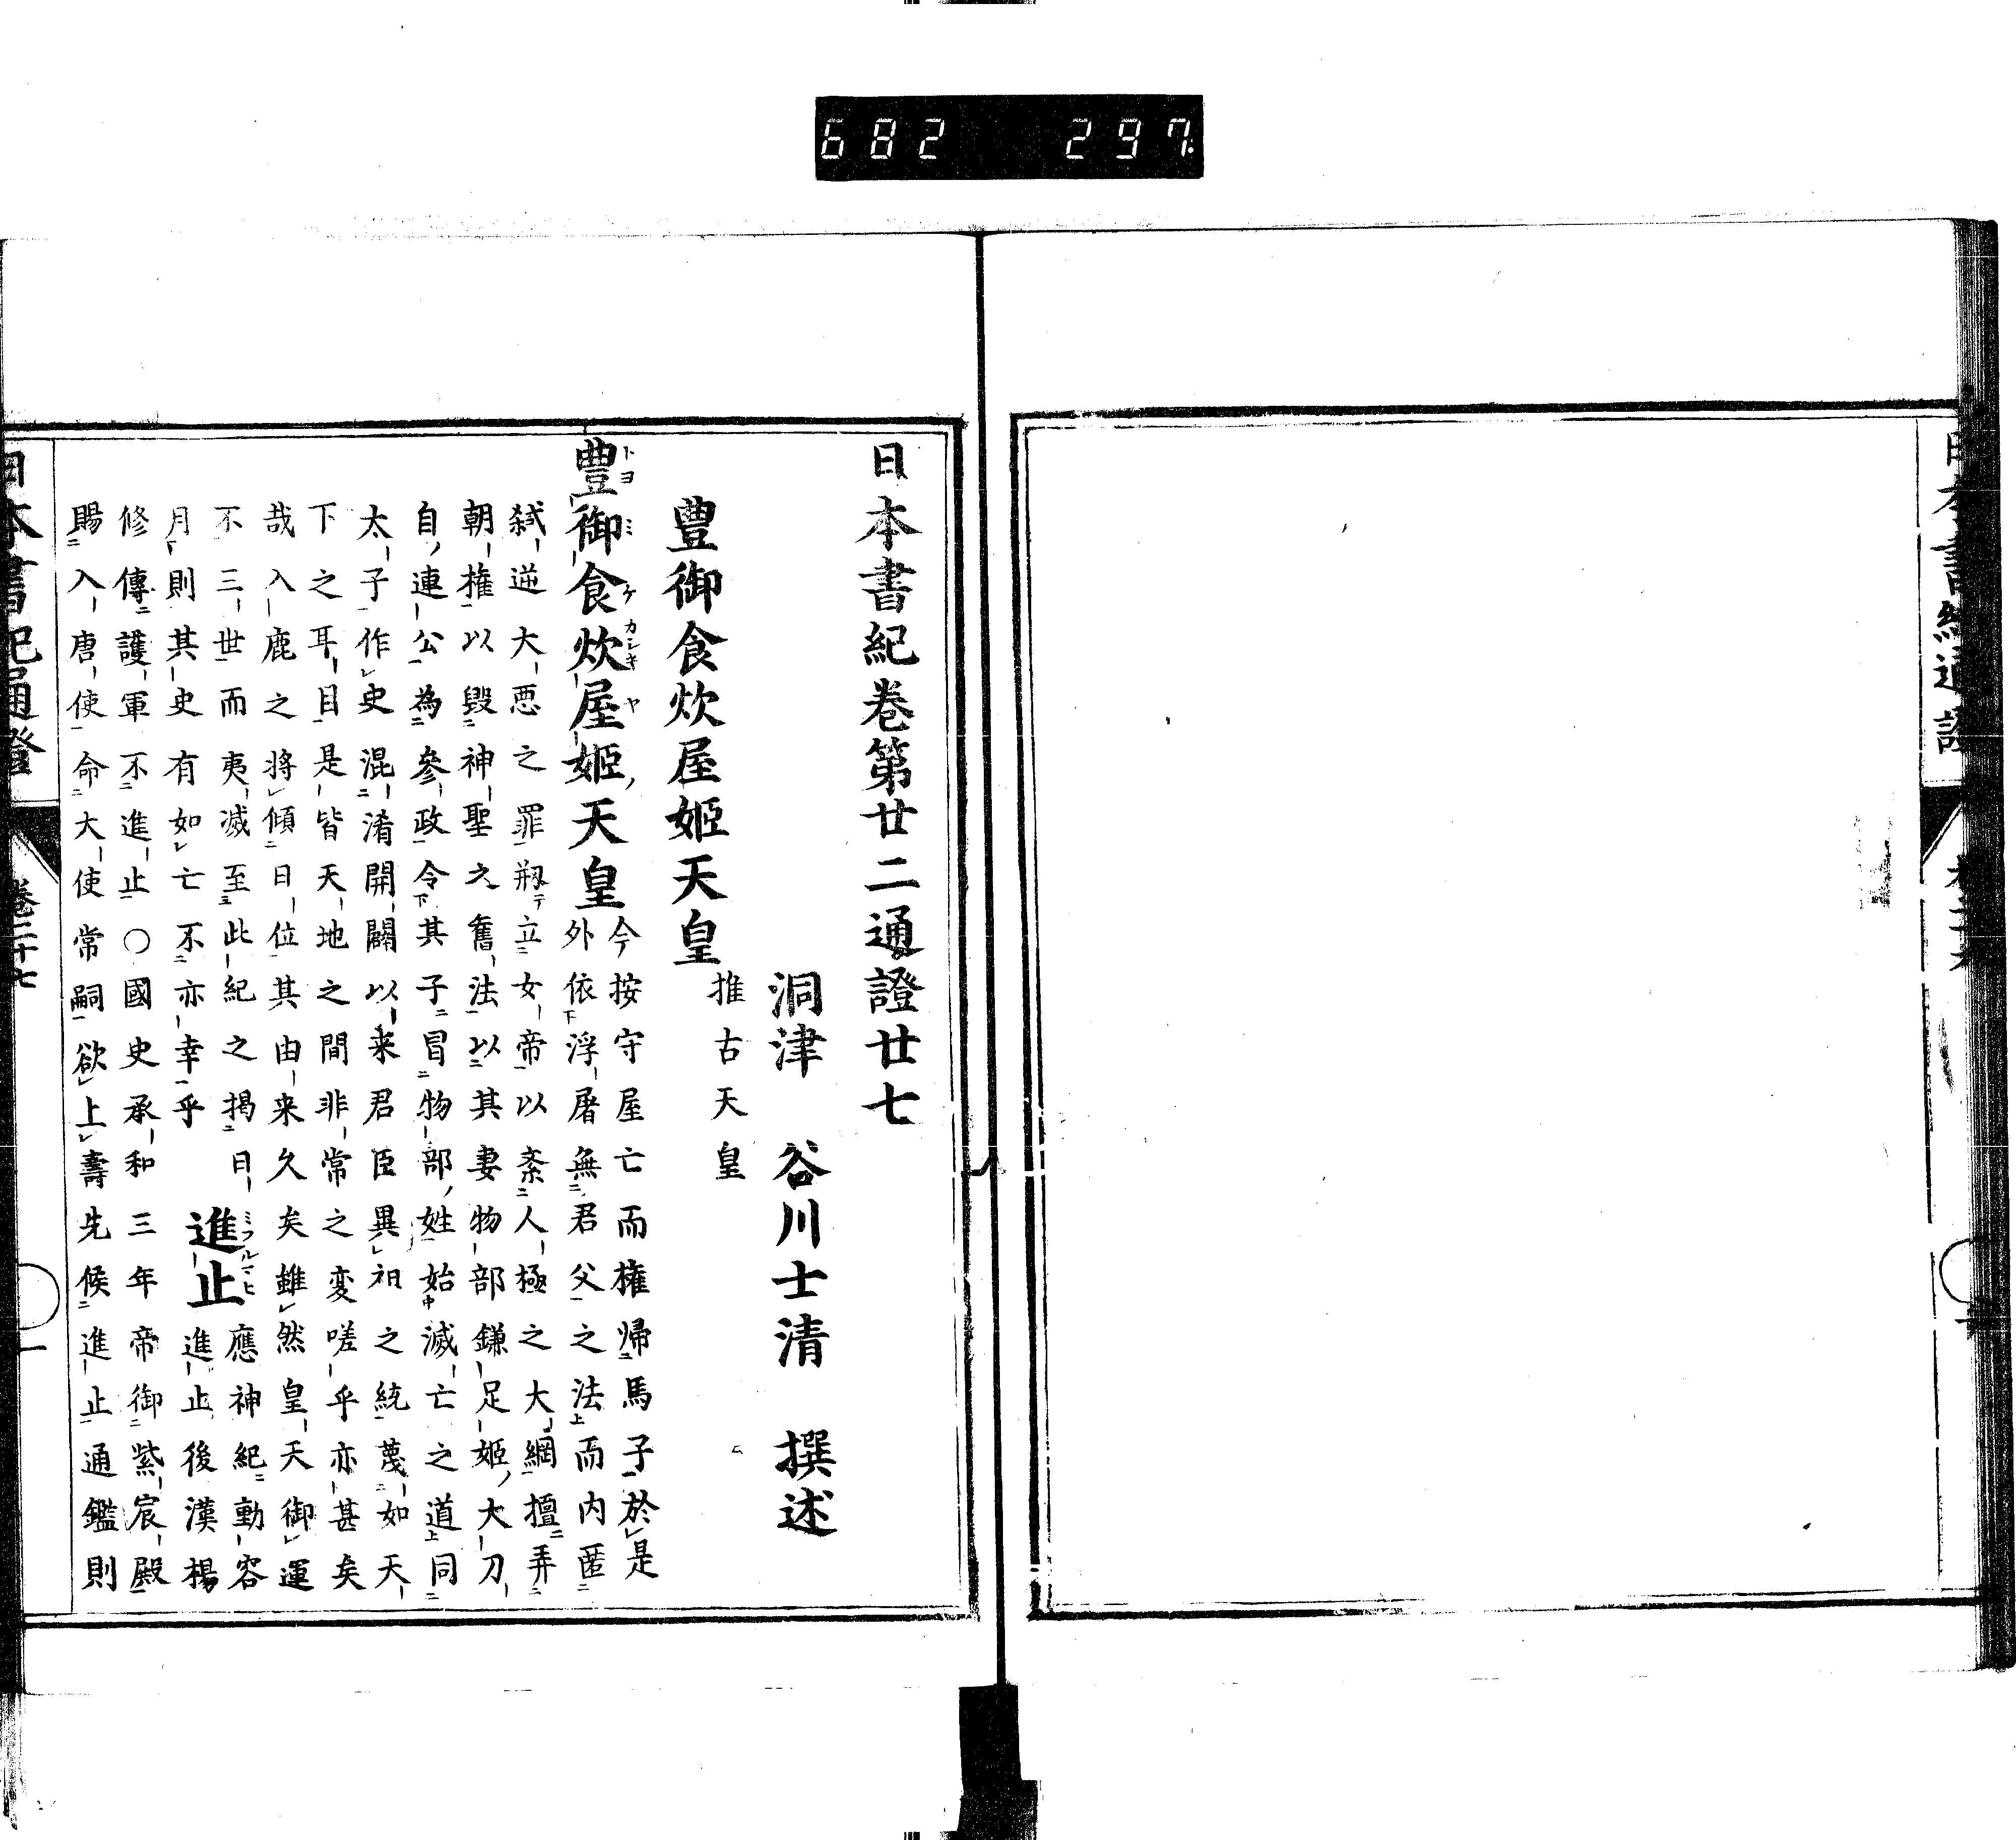 682 297
日本書紀卷第廿二通證廿七
洞津 谷川士清 撰述
豊御食炊屋姬天皇 推古天皇
豊御食炊屋姬天皇
トヨ ミ ケ カシキ ヤ
今按守屋亡而権帰馬子於是
外依浮屠無君父之法而内匿
弑逆大悪之罪剏立女帝以紊人極之大綱擅弄
朝権以毀神聖之舊法以其妻物部鎌足姬大刀
自連公為參政令其子冒物部姓始滅亡之道同
太子作史混淆開闢以来君臣異祖之統蔑如天
下之耳目是皆天地之間非常之変嗟乎亦甚矣
哉入鹿之將傾日位其由来久矣雖然皇天御運
不三世而夷滅至此紀之揭日
月則其史有如亡不亦幸乎
進止
ミフルマヒ
應神紀動容
進止後漢楊
修傳護軍不進止○國史承和三年帝御紫宸殿
賜入唐使命大使常嗣欲上壽先候進止通鑑則
日本書紀通證 卷二十七 一